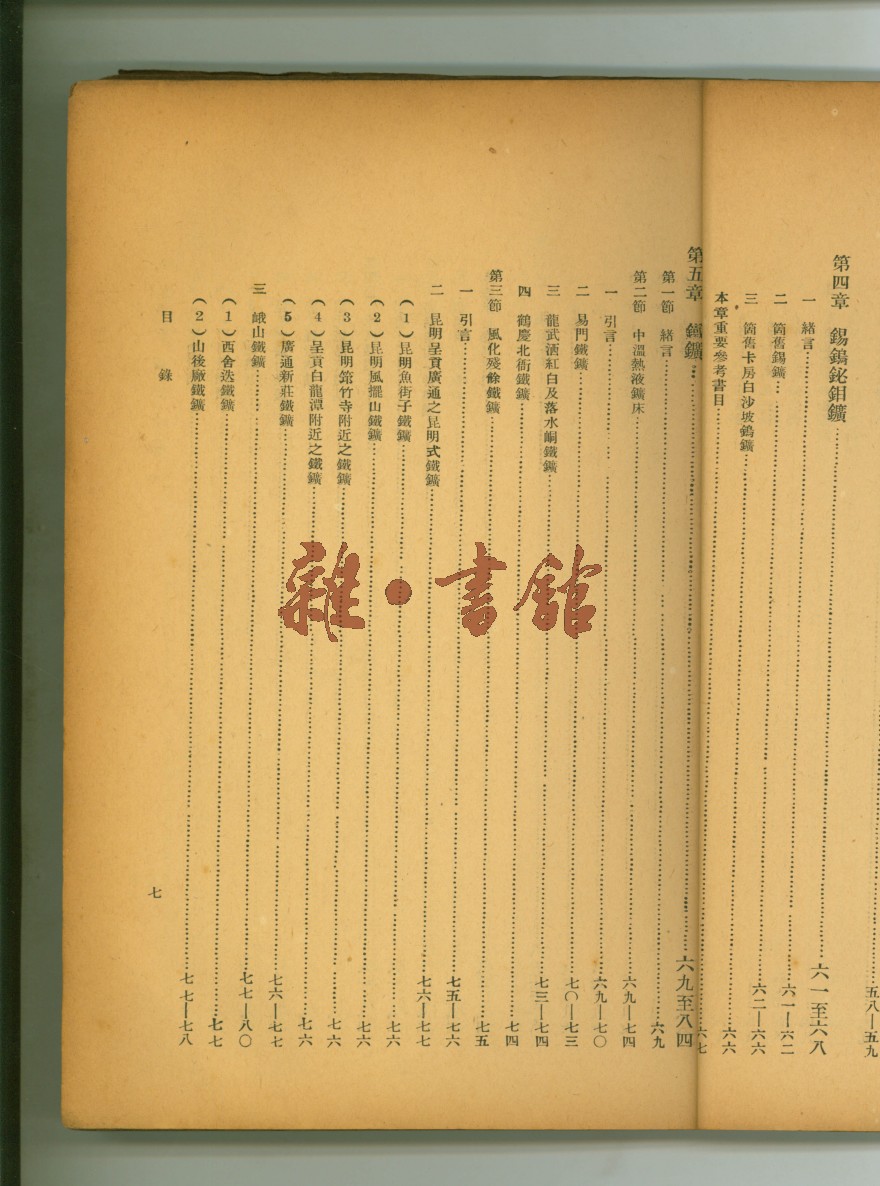 五八—五九
第四章　錫鎢鉍鉬鑛……六一至六八
一　緒言……六一—六二
二　箇舊錫鑛……六二—六六
三　箇舊卡房白沙坡鎢鑛……六六
本章重要參考書目……六七
第五章　鐵鑛……六九至八四
第一節　緒言……六九
第二節　中溫熱液鑛床……六九—七四
一　引言……六九—七〇
二　易門鐵鑛……七〇—七三
三　龍武酒紅白及落水峒鐵鑛……七三—七四
四　鶴慶北衙鐵鑛……七四
第三節　風化殘餘鐵鑛……七五
一　引言……七五—七六
二　昆明呈貢廣通之昆明式鐵鑛……七六—七七
（1）昆明魚街子鐵鑛……七六
（2）昆明風擺山鐵鑛……七六
（3）昆明筇竹寺附近之鐵鑛……七六
（4）呈貢白龍潭附近之鐵鑛……七六
（5）廣通新莊鐵鑛……七六—七七
三　峨山鐵鑛……七七—八〇
（1）西舍迭鐵鑛……七七
（2）山後廠鐵鑛……七七—七八
目錄
七
雜·書館